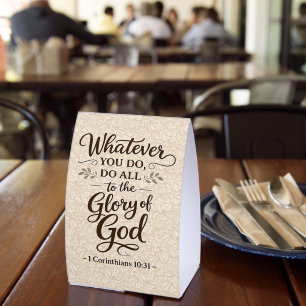 Whatever
YOU DO,
DO ALL
to the
Glory of
God
- 1 Corinthians 10:31 -